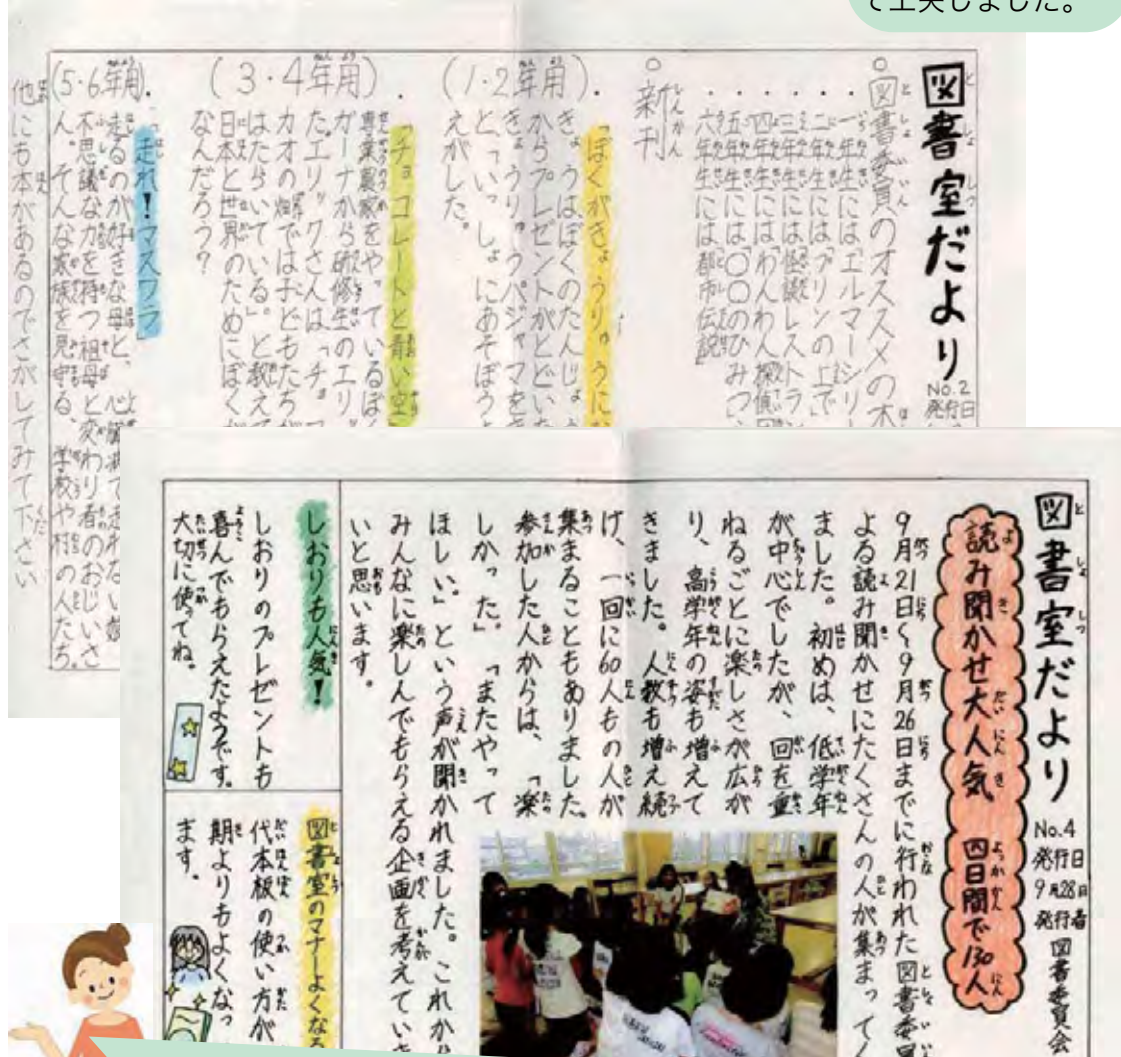 て工夫しました。
図書室だより
No.2
発行日
○図書委員のオススメの本
・一年生には「エルマーシリ
・二年生には「プリンの上で
・三年生には「怪談レストラン
・四年生には「わんわん探偵団
・五年生には「○○のひみつ
・六年生には「都市伝説
○新刊
(1・2年用)・「ぼくがきょうりゅうに
きょうはぼくのたんじょう
からプレゼントがとどいた
きょうりゅうパジャマを
と、「いっしょにあそぼう
えがした。
(3・4年用)・「チョコレートと青い空
専業農家をやっているぼく
ガーナから研修生のエリ
た。エリックさんは、「チョ
カオの畑では子どもたちが
はたらいている。」と教えて
日本と世界のためにぼくが
なんだろう?
(5・6年用)・「走れ!マスワラ
走るのが好きな母と、
不思議な力を持つ祖母と変わり者のおじいさ
ん。そんな家族を見守る、学校や村の人たち。
他にも本があるのでさがしてみて下さい
図書室だより
No.4
発行日
9月28日
発行者
図書委員会
読み聞かせ大人気 四日間で130人
9月21日〜9月26日までに行われた図書委員
よる読み聞かせにたくさんの人が集まってく
ました。初めは、低学年
が中心でしたが、回を重
ねるごとに楽しさが広が
り、高学年の姿も増えて
きました。人数も増え続
け、一回に60人もの人が
集まることもありました。
参加した人からは、「楽
しかった。」「またやって
ほしい。」という声が聞かれました。これから
みんなに楽しんでもらえる企画を考えていき
いと思います。
しおりも人気!
しおりのプレゼントも
喜んでもらえたようです。
大切に使ってね。
図書室のマナーよくなる
代本板の使い方が
期よりもよくなっ
ます。